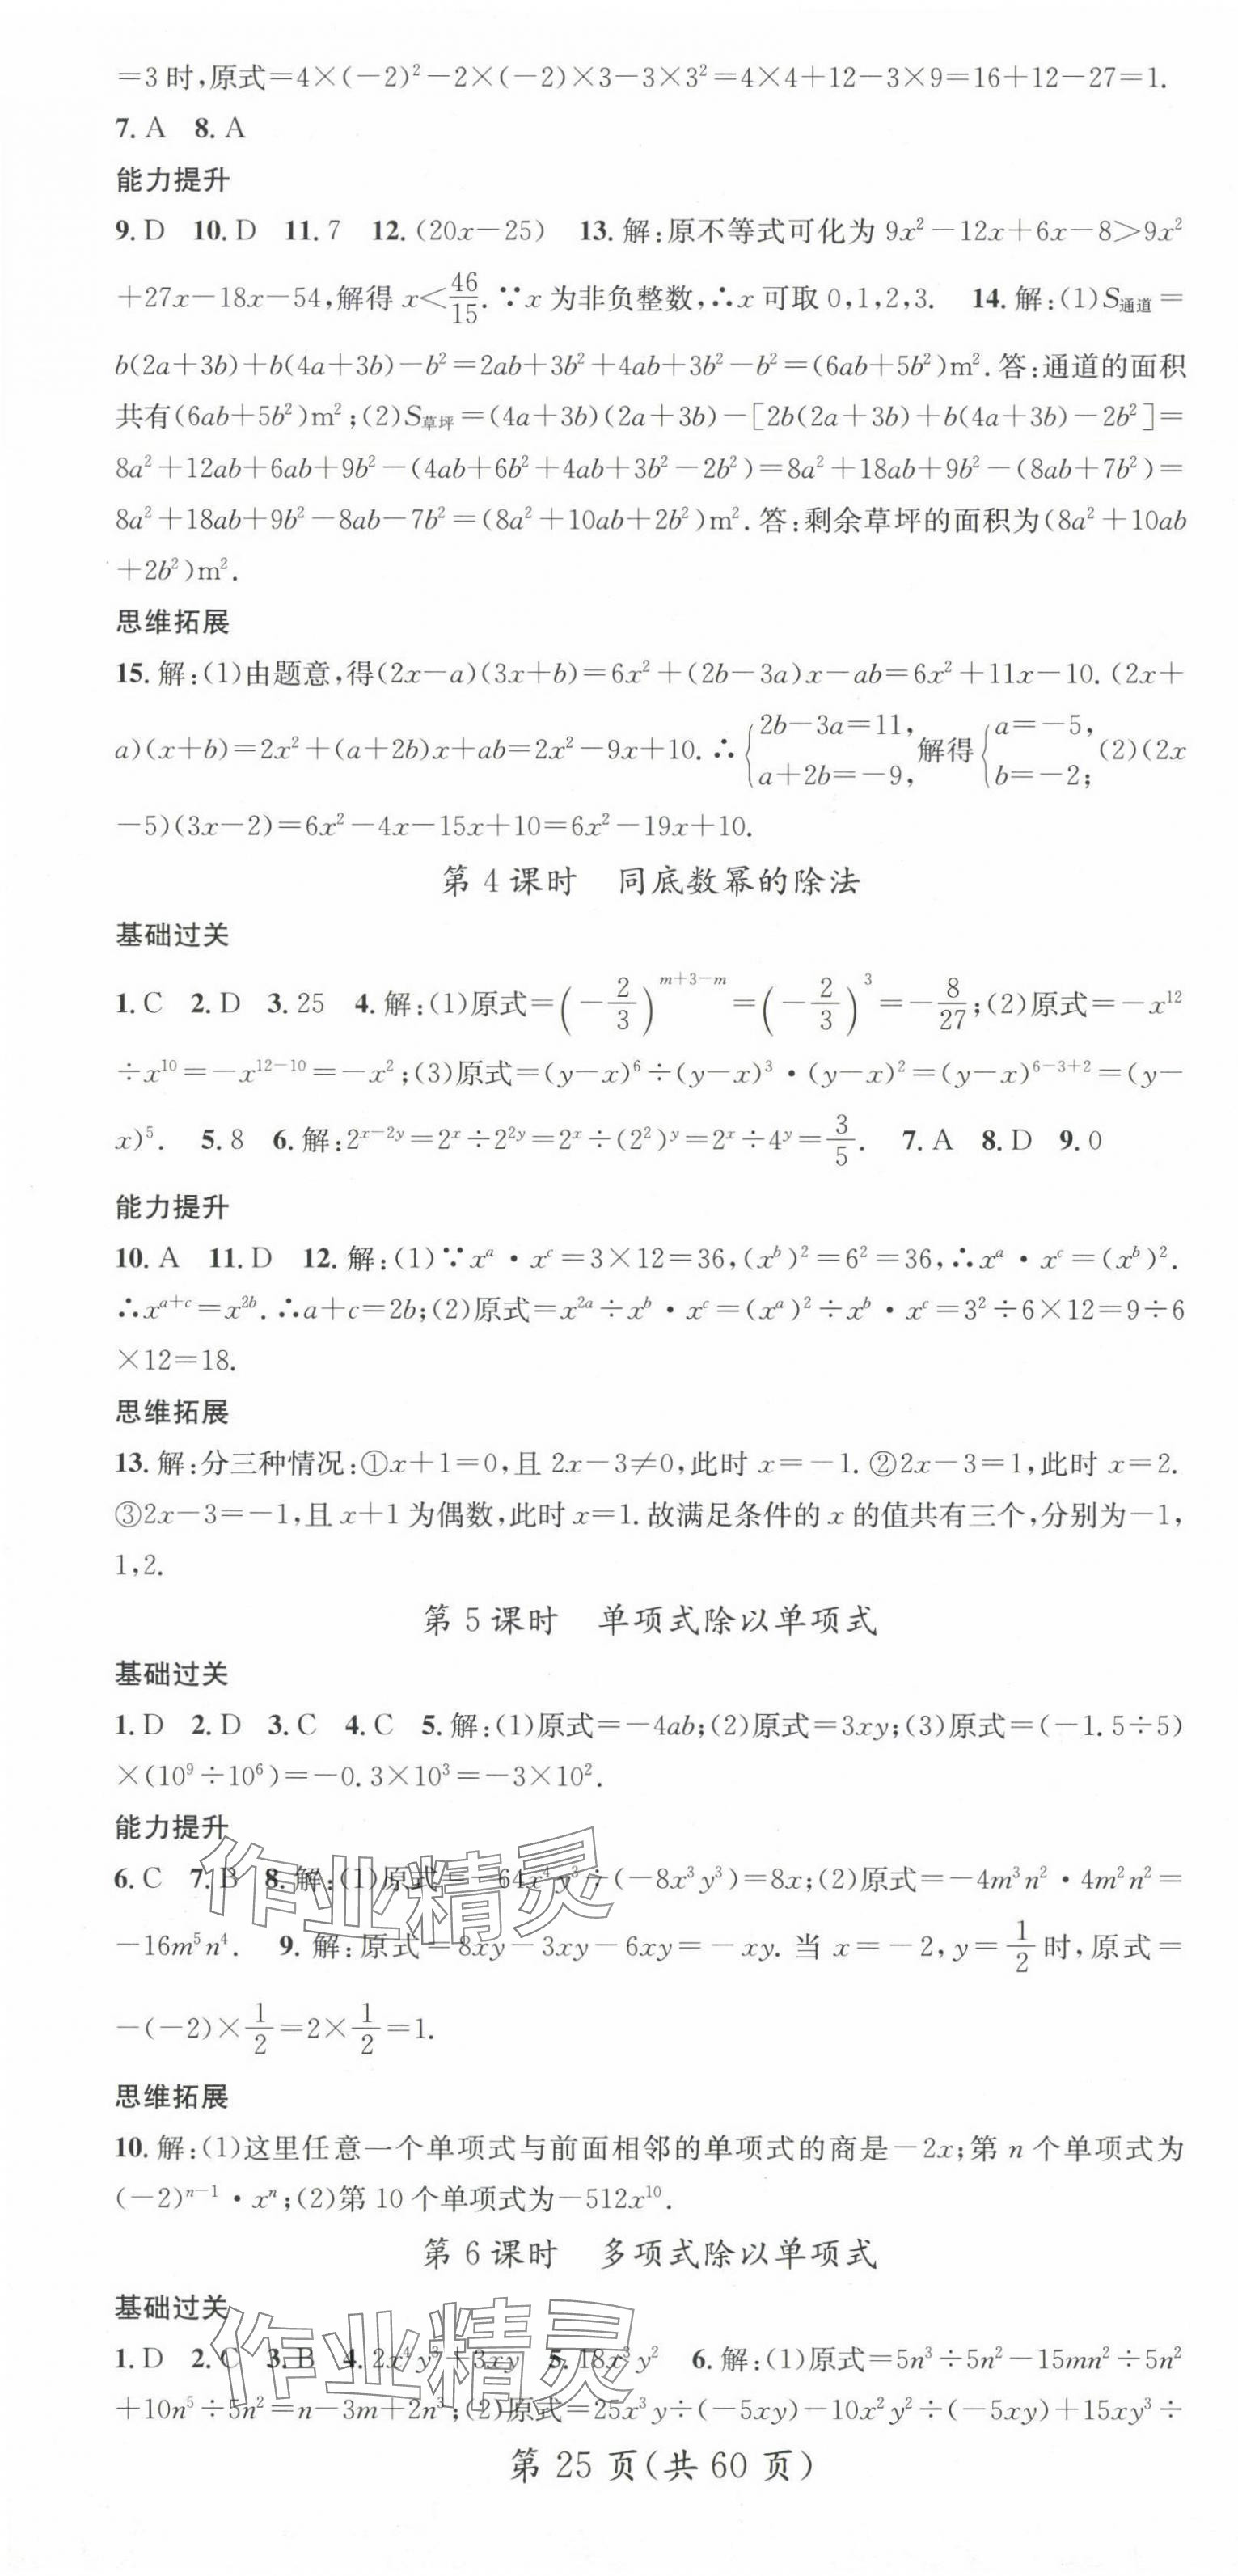 =3时,原式=4×(-2)²-2×(-2)×3-3×3²=4×4+12-3×9=16+12-27=1.
7. A 8. A
能力提升
9. D 10. D 11. 7 12. (20x-25) 13. 解:原不等式可化为 9x²-12x+6x-8>9x²
+27x-18x-54,解得 x<46/15. ∵x 为非负整数,∴x 可取 0,1,2,3. 14. 解:(1)S通道=
b(2a+3b)+b(4a+3b)-b²=2ab+3b²+4ab+3b²-b²=(6ab+5b²)m². 答:通道的面积
共有(6ab+5b²)m²;(2)S草坪=(4a+3b)(2a+3b)-[2b(2a+3b)+b(4a+3b)-2b²]=
8a²+12ab+6ab+9b²-(4ab+6b²+4ab+3b²-2b²)=8a²+18ab+9b²-(8ab+7b²)=
8a²+18ab+9b²-8ab-7b²=(8a²+10ab+2b²)m². 答:剩余草坪的面积为(8a²+10ab
+2b²)m².
思维拓展
15. 解:(1)由题意,得(2x-a)(3x+b)=6x²+(2b-3a)x-ab=6x²+11x-10. (2x+
a)(x+b)=2x²+(a+2b)x+ab=2x²-9x+10. ∴{2b-3a=11, a+2b=-9, 解得{a=-5, b=-2; (2)(2x
-5)(3x-2)=6x²-4x-15x+10=6x²-19x+10.
第 4 课时 同底数幂的除法
基础过关
1. C 2. D 3. 25 4. 解:(1)原式=(-2/3)^(m+3-m)=(-2/3)³=-8/27;(2)原式=-x¹²
÷x¹⁰=-x¹²⁻¹⁰=-x²;(3)原式=(y-x)⁶÷(y-x)³·(y-x)²=(y-x)⁶⁻³⁺²=(y-
x)⁵. 5. 8 6. 解:2^(x-2y)=2^x÷2^(2y)=2^x÷(2²)^y=2^x÷4^y=3/5. 7. A 8. D 9. 0
能力提升
10. A 11. D 12. 解:(1)∵x^a·x^c=3×12=36,(x^b)²=6²=36,∴x^a·x^c=(x^b)².
∴x^(a+c)=x^(2b). ∴a+c=2b;(2)原式=x^(2a)÷x^b·x^c=(x^a)²÷x^b·x^c=3²÷6×12=9÷6
×12=18.
思维拓展
13. 解:分三种情况:①x+1=0,且 2x-3≠0,此时 x=-1. ②2x-3=1,此时 x=2.
③2x-3=-1,且 x+1 为偶数,此时 x=1. 故满足条件的 x 的值共有三个,分别为-1,
1,2.
第 5 课时 单项式除以单项式
基础过关
1. D 2. D 3. C 4. C 5. 解:(1)原式=-4ab;(2)原式=3xy;(3)原式=(-1.5÷5)
×(10⁹÷10⁶)=-0.3×10³=-3×10².
能力提升
6. C 7. B 8. 解:(1)原式=-64x⁴y³÷(-8x³y³)=8x;(2)原式=-4m³n²·4m²n²=
-16m⁵n⁴. 9. 解:原式=8xy-3xy-6xy=-xy. 当 x=-2,y=1/2时,原式=
-(-2)×1/2=2×1/2=1.
思维拓展
10. 解:(1)这里任意一个单项式与前面相邻的单项式的商是-2x;第 n 个单项式为
(-2)^(n-1)·x^n;(2)第 10 个单项式为-512x¹⁰.
第 6 课时 多项式除以单项式
基础过关
1. D 2. C 3. B 4. 2x⁴y³+3xy 5. 18x³y² 6. 解:(1)原式=5n³÷5n²-15mn²÷5n²
+10n⁵÷5n²=n-3m+2n³;(2)原式=25x³y÷(-5xy)-10x²y²÷(-5xy)+15xy³÷
第 25 页(共 60 页)
作业精灵
作业精灵